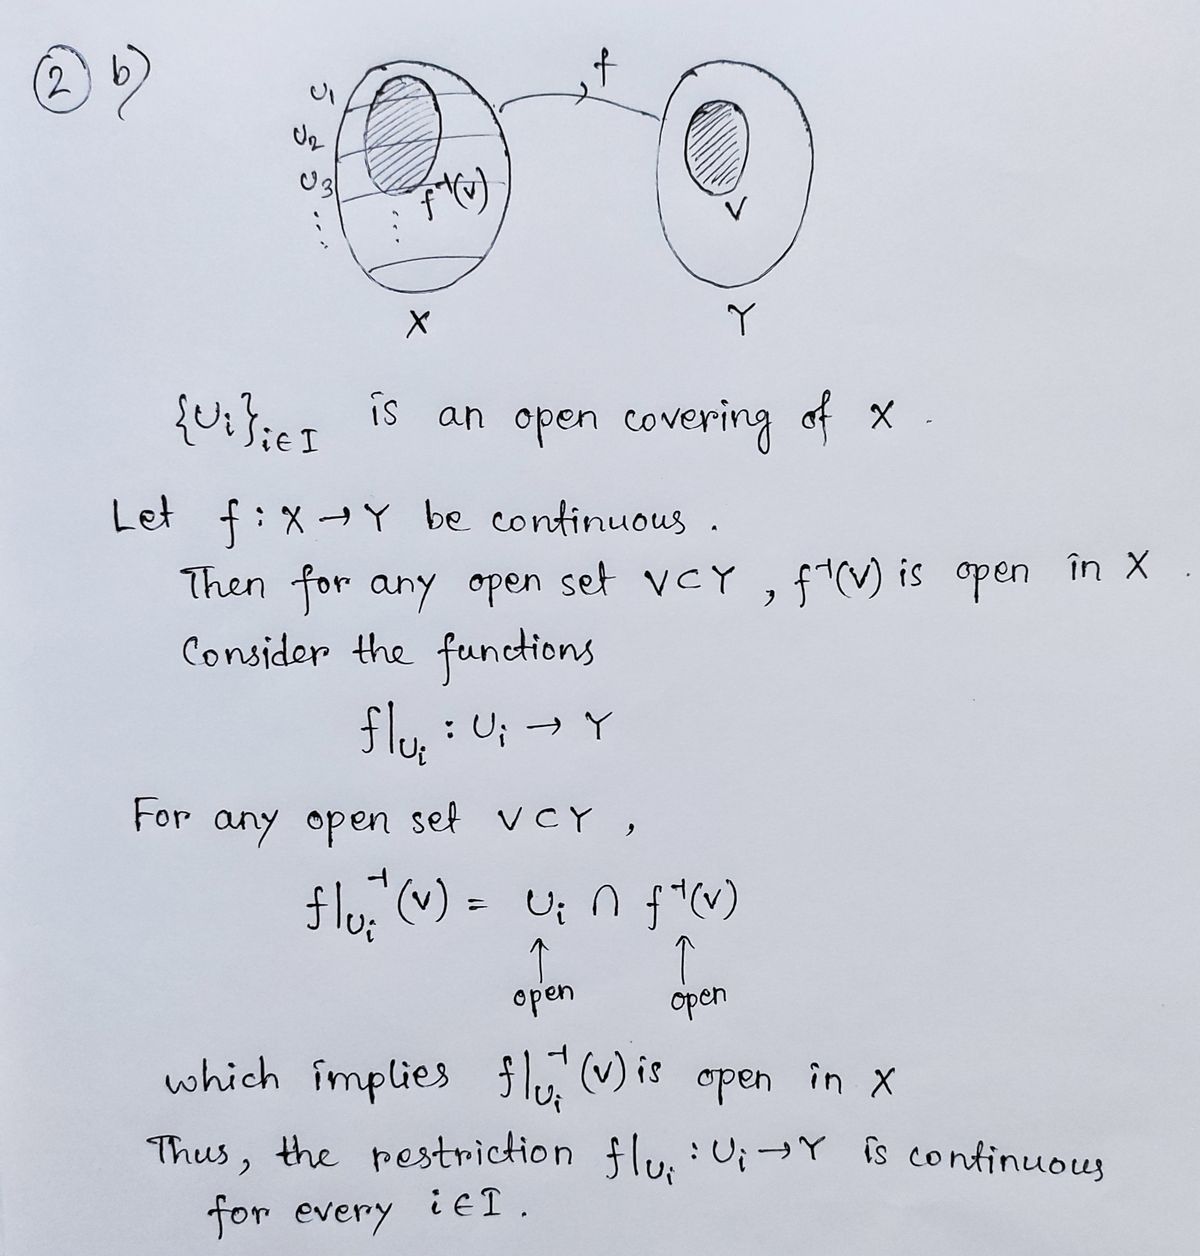 ② b)
f
U₁
U₂
U₃
⋮
⋮
f⁻¹(V)
V
X
Y
{Uᵢ}ᵢ∈I is an open covering of X .
Let f : X → Y be continuous .
Then for any open set V ⊂ Y , f⁻¹(V) is open in X .
Consider the functions
f|Uᵢ : Uᵢ → Y
For any open set V ⊂ Y ,
f|Uᵢ⁻¹(V) = Uᵢ ∩ f⁻¹(V)
↑ ↑
open open
which implies f|Uᵢ⁻¹(V) is open in X
Thus, the restriction f|Uᵢ : Uᵢ → Y is continuous
for every i ∈ I .